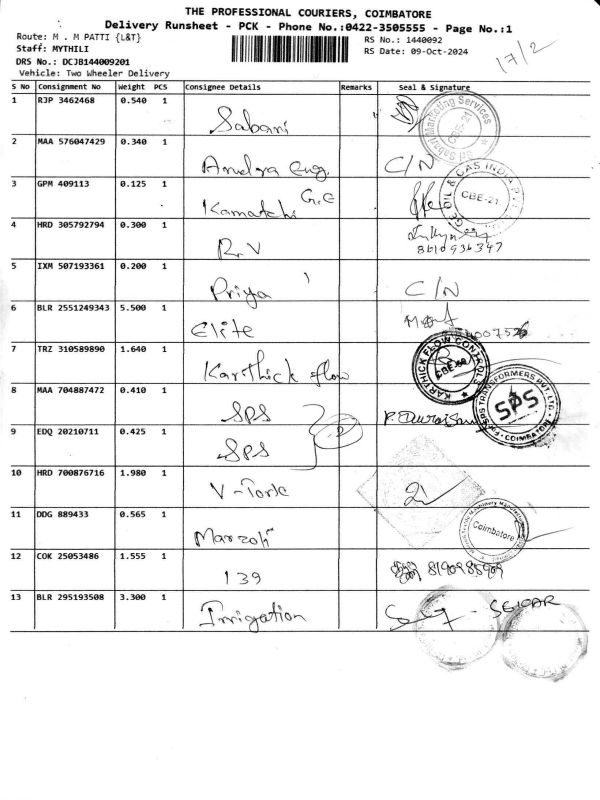 THE PROFESSIONAL COURIERS, COIMBATORE
Delivery Runsheet - PCK - Phone No.:0422-3505555 - Page No.:1
Route: M . M PATTI {L&T}
RS No.: 1440092
Staff: MYTHILI
RS Date: 09-Oct-2024
17/2
DRS No.: DCJB144009201
Vehicle: Two Wheeler Delivery
S No Consignment No Weight PCS Consignee Details Remarks Seal & Signature
1 RJP 3462468 0.540 1 Sabari
Sabari Marketing Services CBE-21
2 MAA 576047429 0.340 1 Andra Eng. C/N
3 GPM 409113 0.125 1 Kamatchi G.C
GE OIL & GAS INDIA PVT CBE-21
4 HRD 305792794 0.300 1 R.V
8610936347
5 IXM 507193361 0.200 1 Priya C/N
6 BLR 2551249343 5.500 1 Elite
7 TRZ 310589890 1.640 1 Karthick flow
KARTHICK FLOW CONTROLS
8 MAA 704887472 0.410 1 SPS
SPS TRANSFORMERS PVT. LTD. SPS COIMBATORE
9 EDQ 20210711 0.425 1 SPS
10 HRD 700876716 1.980 1 V-Tork
11 DDG 889433 0.565 1 Marzoli
Coimbatore
12 COK 25053486 1.555 1 139
13 BLR 295193508 3.300 1 Irrigation